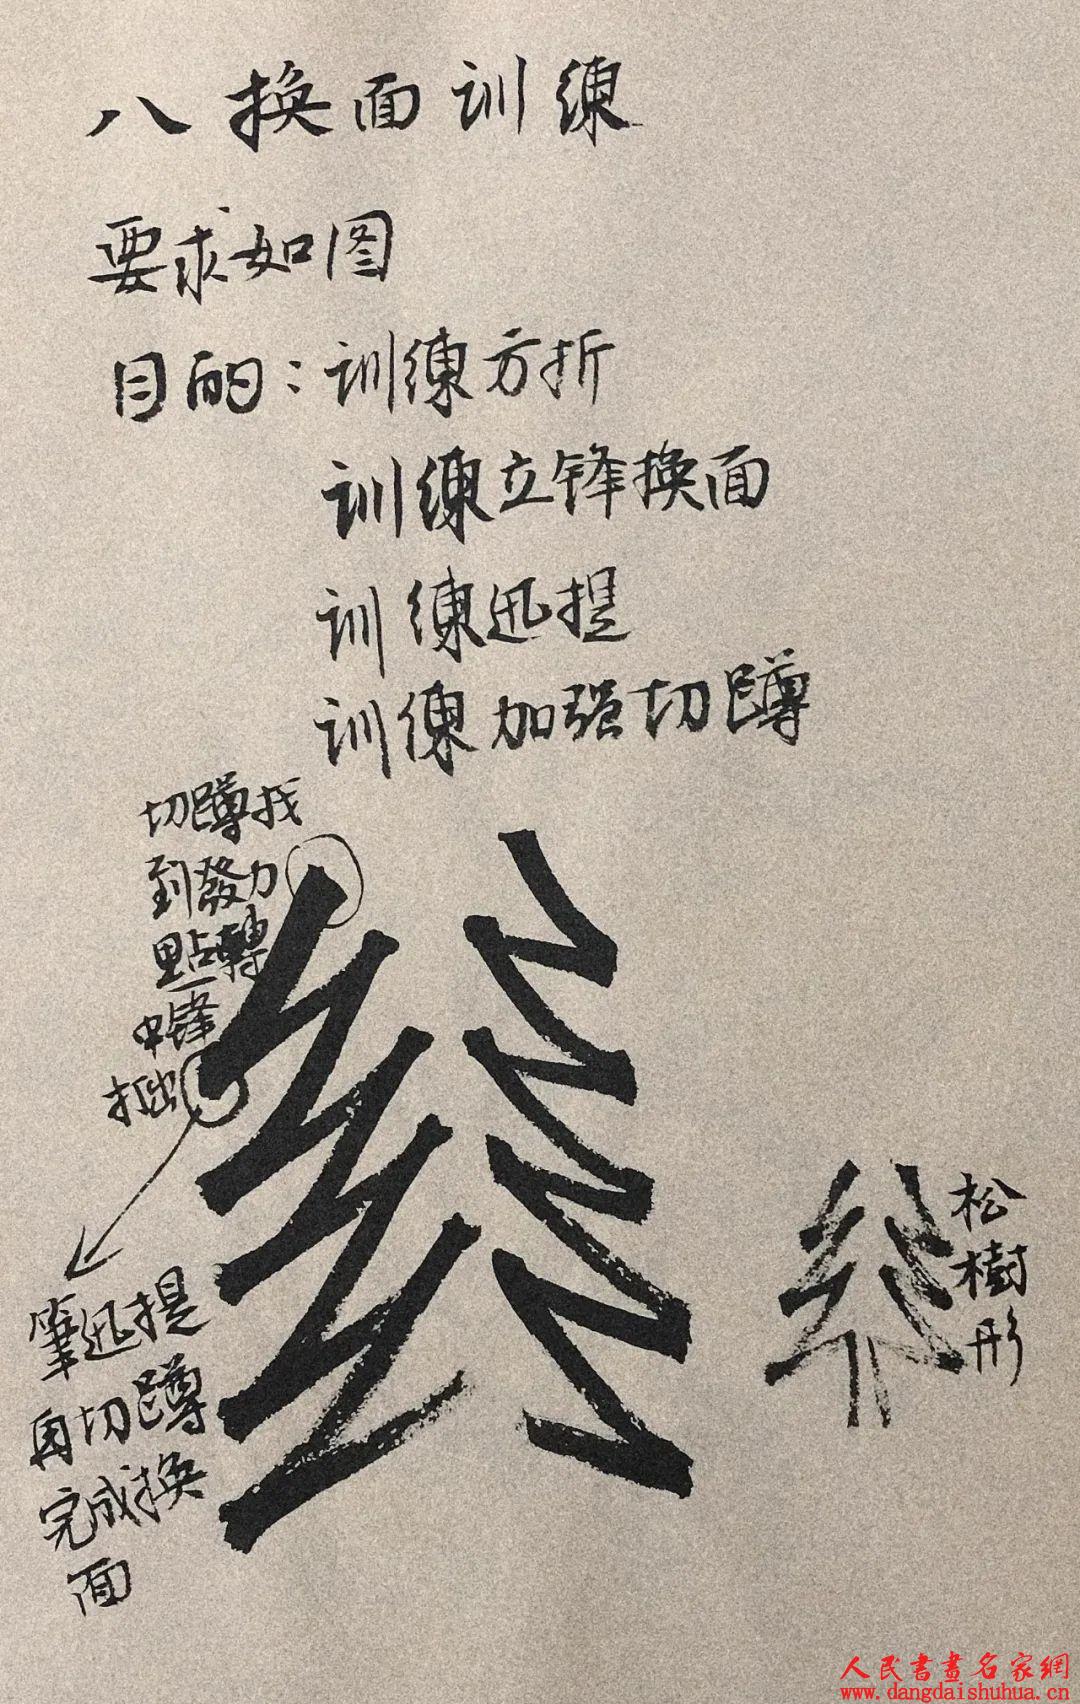 八换面训练
要求如图
目的：训练方折
训练立锋换面
训练迅提
训练加强切蹲
切蹲找
到發力
點轉
中锋
拙出
筆迅提
再切蹲
完成换
面
松樹形
人民書畫名家網
www.dangdaishuhua.cn